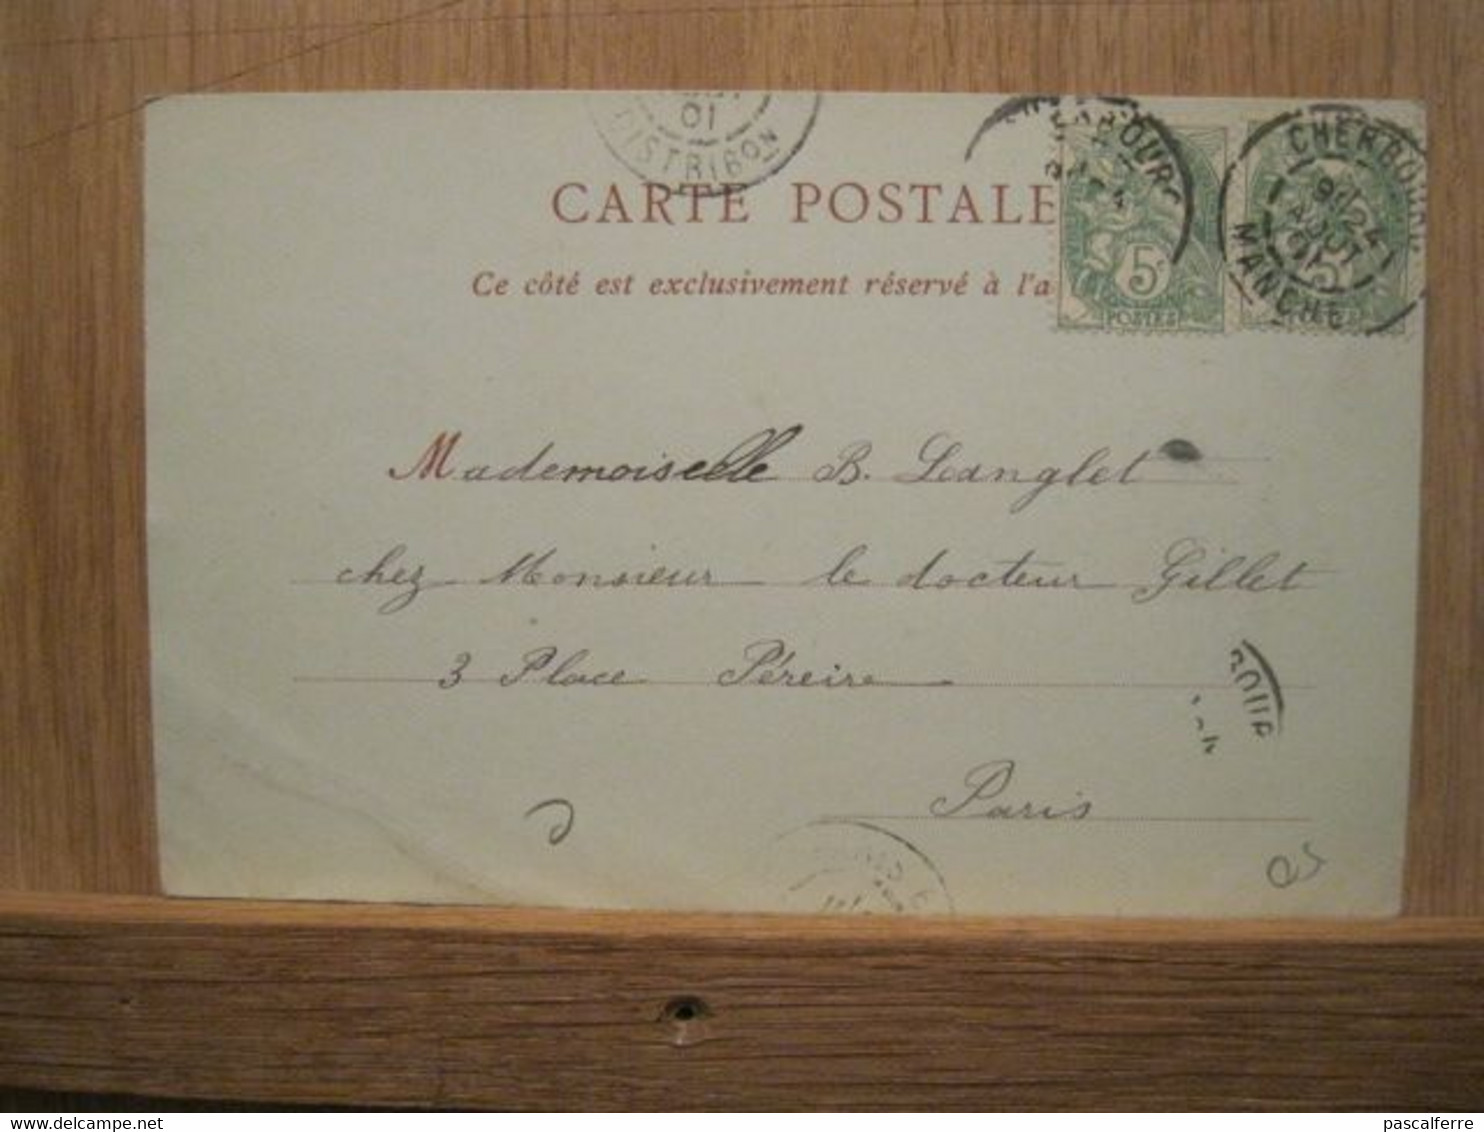 01
DISTRIBON
CARTE POSTALE
Ce côté est exclusivement réservé à l'a
5c
POSTES
CHERBOURG
AOUT
01
MANCHE
Mademoiselle B. Langlet
chez Monsieur le docteur Gillet
3 Place Péreire
Paris
delcampe.net
pascalferre